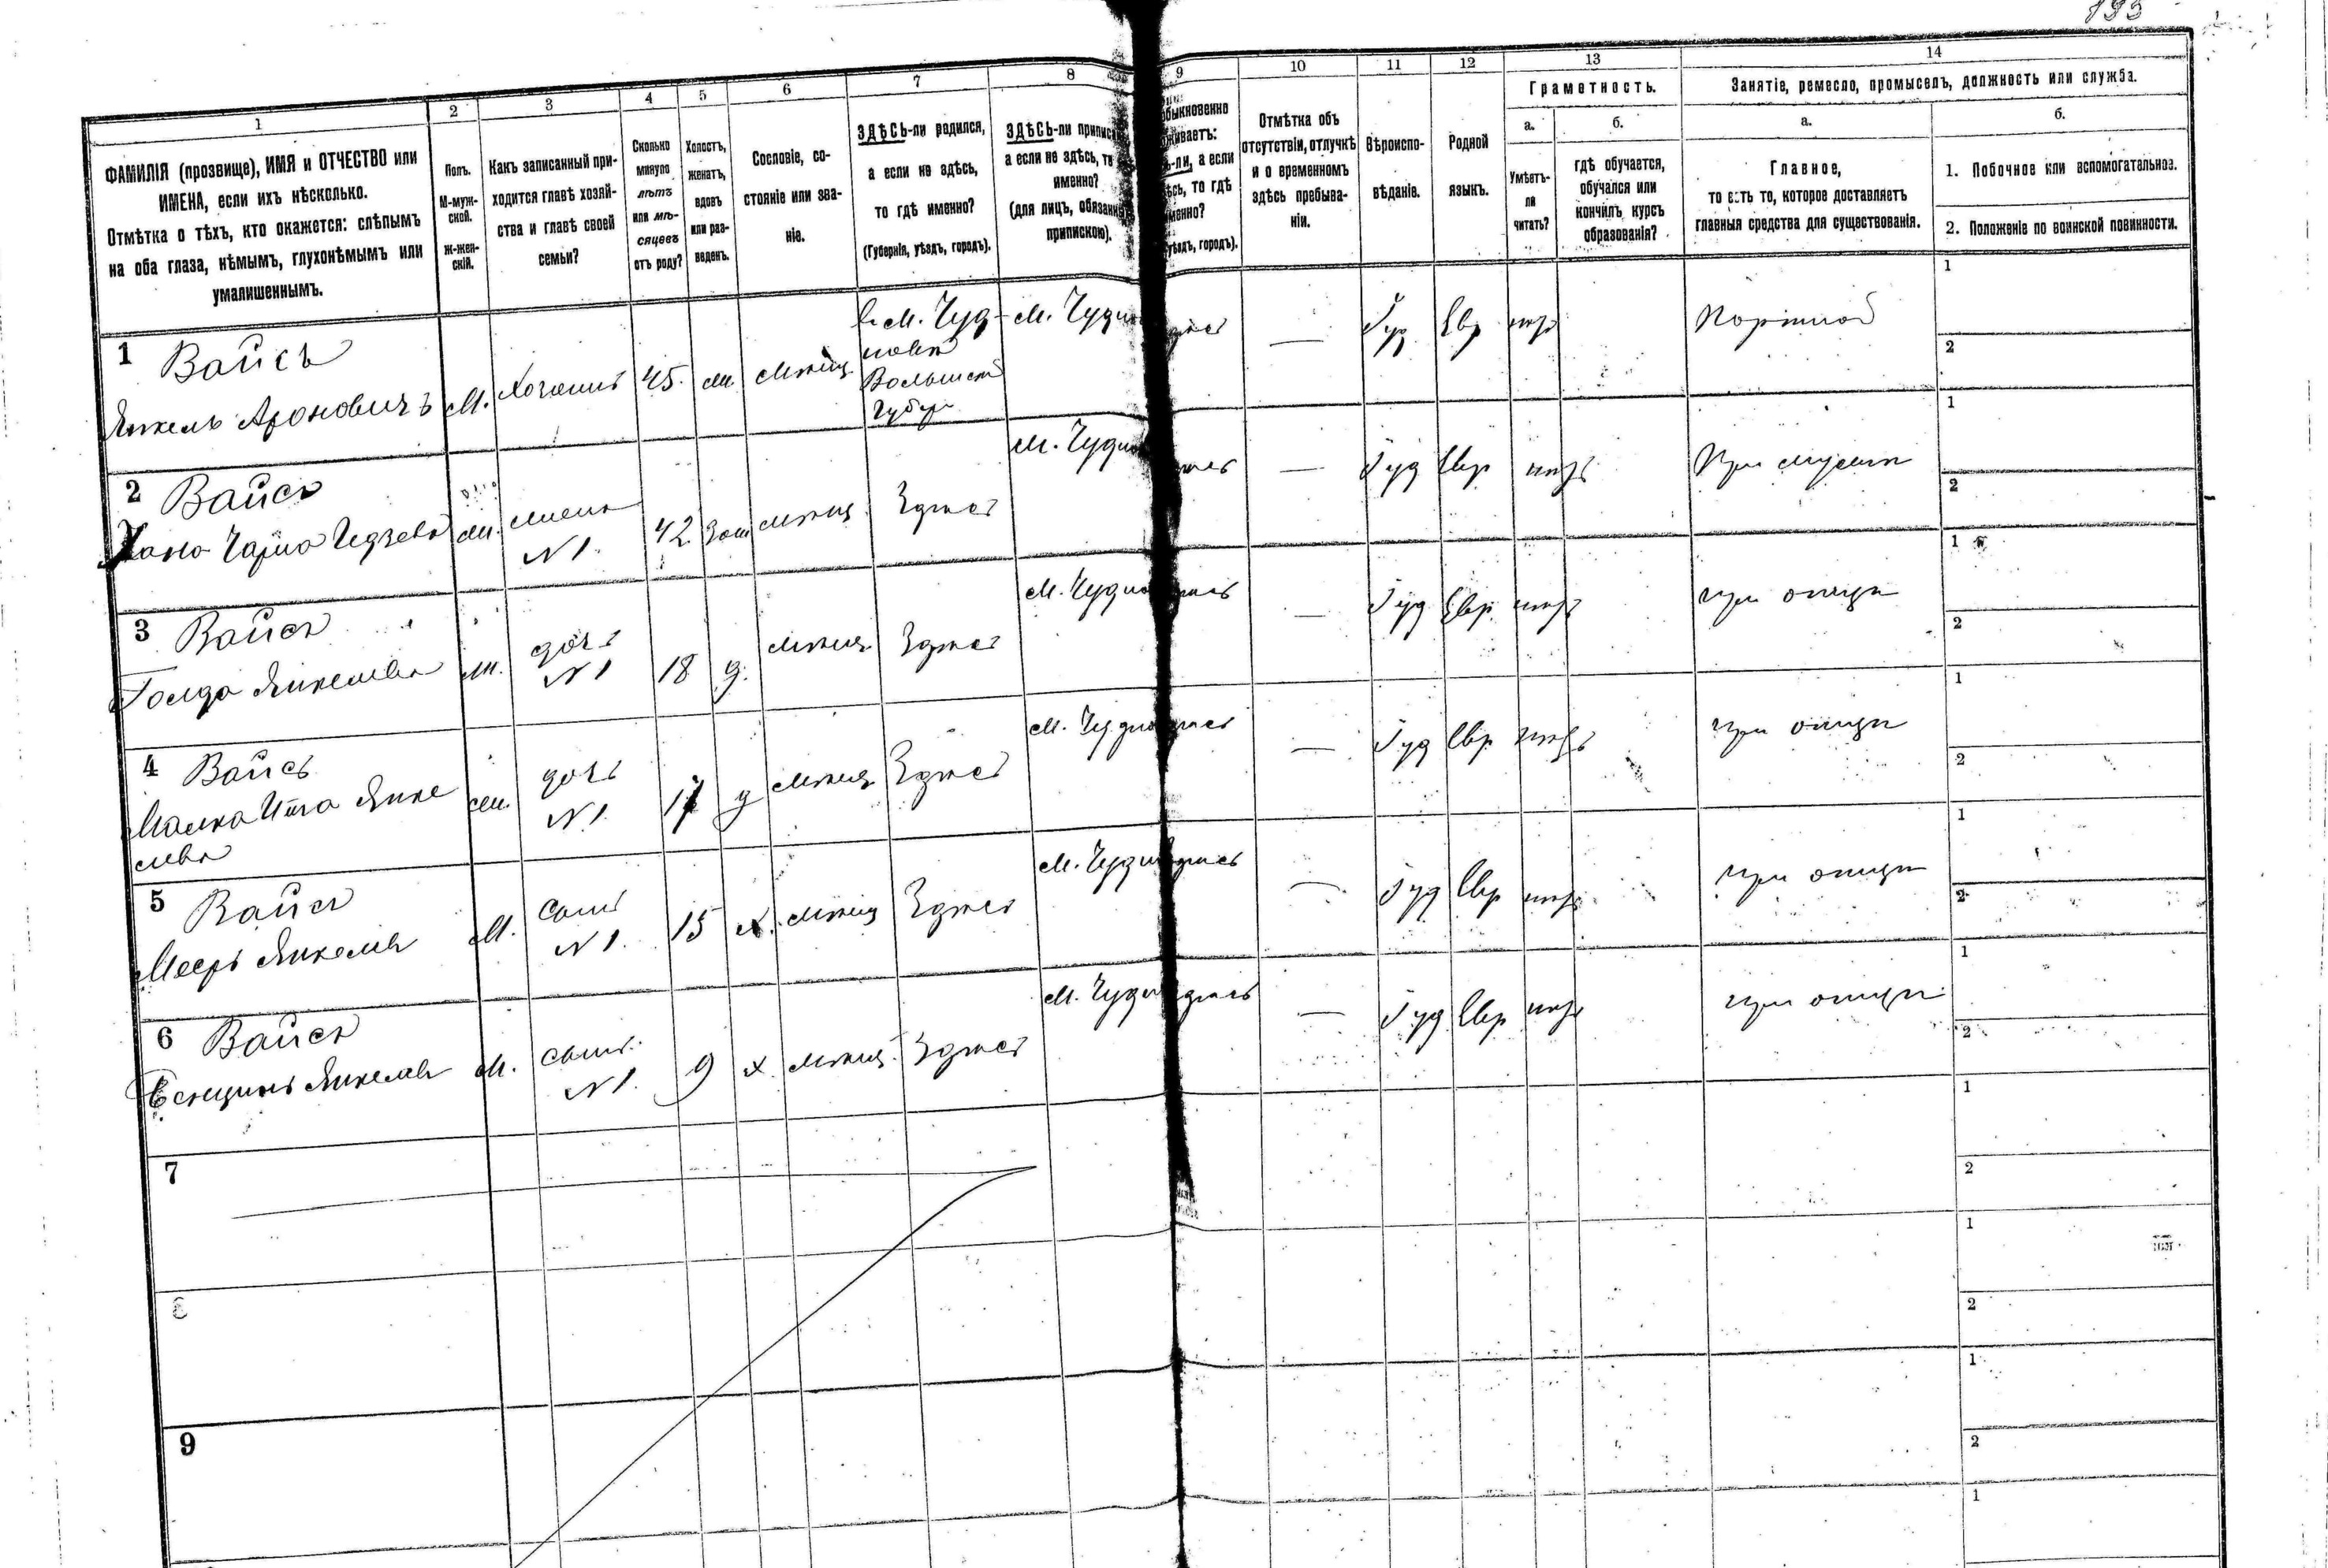 195
1
ФАМИЛІЯ (прозвище), ИМЯ и ОТЧЕСТВО или
ИМЕНА, если ихъ нѣсколько.
Отмѣтка о тѣхъ, кто окажется: слѣпымъ
на оба глаза, нѣмымъ, глухонѣмымъ или
умалишеннымъ.
2
Полъ.
М-муж-
ской.
Ж-жен-
скій.
3
Какъ записанный при-
ходится главѣ хозяй-
ства и главѣ своей
семьи?
4
Сколько
минуло
лѣтъ
или мѣ-
сяцевъ
отъ роду?
5
Холостъ,
женатъ,
вдовъ
или раз-
веденъ.
6
Сословіе, со-
стояніе или зва-
ніе.
7
ЗДѢСЬ-ли родился,
а если не здѣсь,
то гдѣ именно?
(Губернія, уѣздъ, городъ).
8
ЗДѢСЬ-ли приписа
а если не здѣсь, то
именно?
(для лицъ, обязанн
припискою).
9
обыкновенно
живаетъ:
ь-ли, а если
ѣсь, то гдѣ
менно?
уѣздъ, городъ).
10
Отмѣтка объ
отсутствіи, отлучкѣ
и о временномъ
здѣсь пребыва-
ніи.
11
Вѣроиспо-
вѣданіе.
12
Родной
языкъ.
13
Грамотность.
а.
Умѣетъ-
ли
читать?
б.
гдѣ обучается,
обучался или
кончилъ курсъ
образованія?
14
Занятіе, ремесло, промыселъ, должность или служба.
а.
Главное,
то есть то, которое доставляетъ
главныя средства для существованія.
б.
1. Побочное или вспомогательное.
2. Положеніе по воинской повинности.
1 Вайсъ
Янкель Ароновичъ М. Хозяинъ 45. ж. мѣщ. в. м. Чуд-
новѣ
Волынской
Губер м. Чудно здѣсь — Іуд Евр нѣтъ Портной 1
2
2 Вайсъ
Хана ж. жена
№ 1. 42 Зам мѣщ. Здѣсь м. Чудно здѣсь — Іуд Евр нѣтъ При мужѣ 1
2
3 Вайсъ
Голда Янкелева ж. дочь
№ 1 18 д. мѣщ. Здѣсь м. Чудно здѣсь — Іуд Евр. нѣтъ при отцѣ 1
2
4 Вайсъ
Малка Ита Янке
лева ж. дочь
№ 1. 17 д мѣщ Здѣсь м. Чудно здѣсь — Іуд Евр. нѣтъ при отцѣ 1
2
5 Вайсъ
Меер Янкелев М. Сынъ
№ 1. 15 х. мѣщ Здѣсь м. Чудн здѣсь — Іуд Евр нѣтъ при отцѣ 1
2
6 Вайсъ
Янкелев М. сынъ.
№ 1. 9 х. мѣщ. Здѣсь м. Чудн здѣсь — Іуд Евр нѣтъ при отцѣ 1
2
7 1
2
8 1
2
9 1
2
1